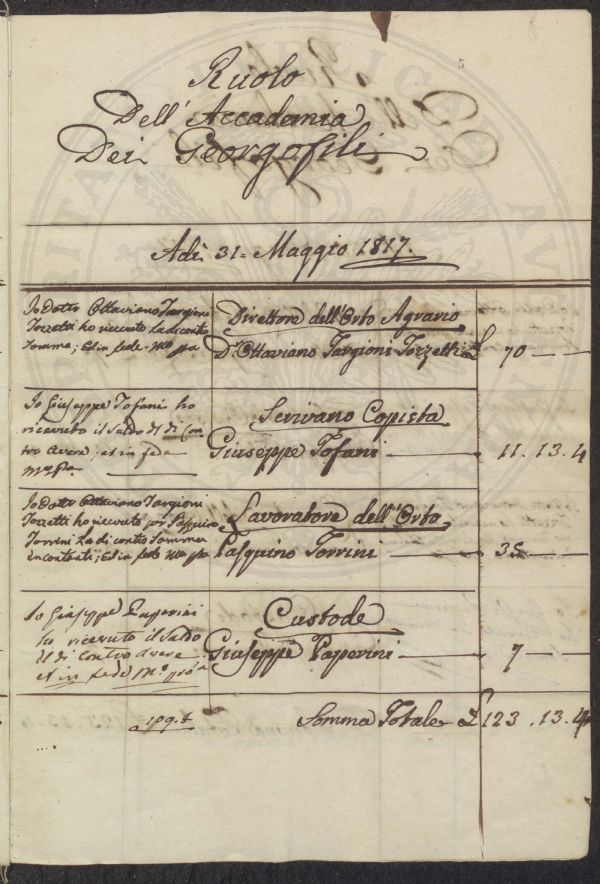 Ruolo
Dell' Accademia
Dei Georgofili
Adì 31. Maggio 1817.
Io Dottr Ottaviano Targioni
Tozzetti ho ricevuto la di contro
Somma; Ed in fede Mo ppa
Direttore dell'Orto Agrario
Dr. Ottaviano Targioni Tozzetti £ 70 — —
Io Giuseppe Tofani ho
ricevuto il Saldo di Con
tro avere, et in fede
Mo. Pa.
Scrivano Copista
Giuseppe Tofani — 11. 13. 4
Io Dottr Ottaviano Targioni
Tozzetti ho ricevuto per Pasquino
Torrini La di contro Somma
in contanti; Ed in fede Mo pa
Lavoratore dell'Orto
Pasquino Torrini — 35 —
Io Giuseppe Paperini
ho ricevuto il Saldo
di Contro avere
et in fede Mo. ppa
Custode
Giuseppe Paperini — 7 —
Somma Totale £ 123. 13. 4